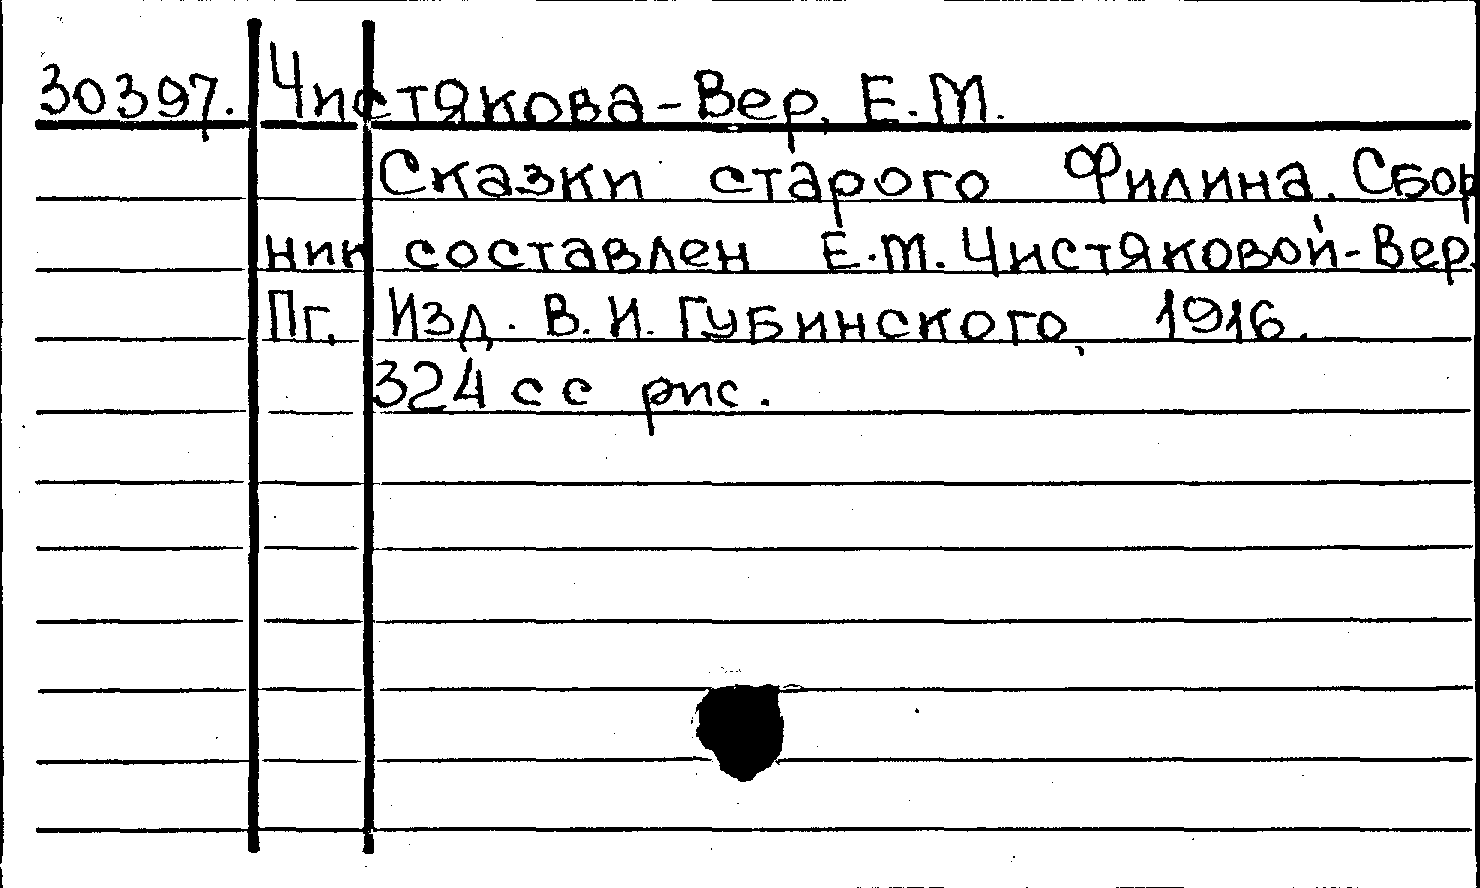 30397. Чистякова-Вер, Е.М.
Сказки старого Филина. Сбор
ник составлен Е.М. Чистяковой-Вер.
Пг. Изд. В.И. Губинского, 1916.
324 с с рис.